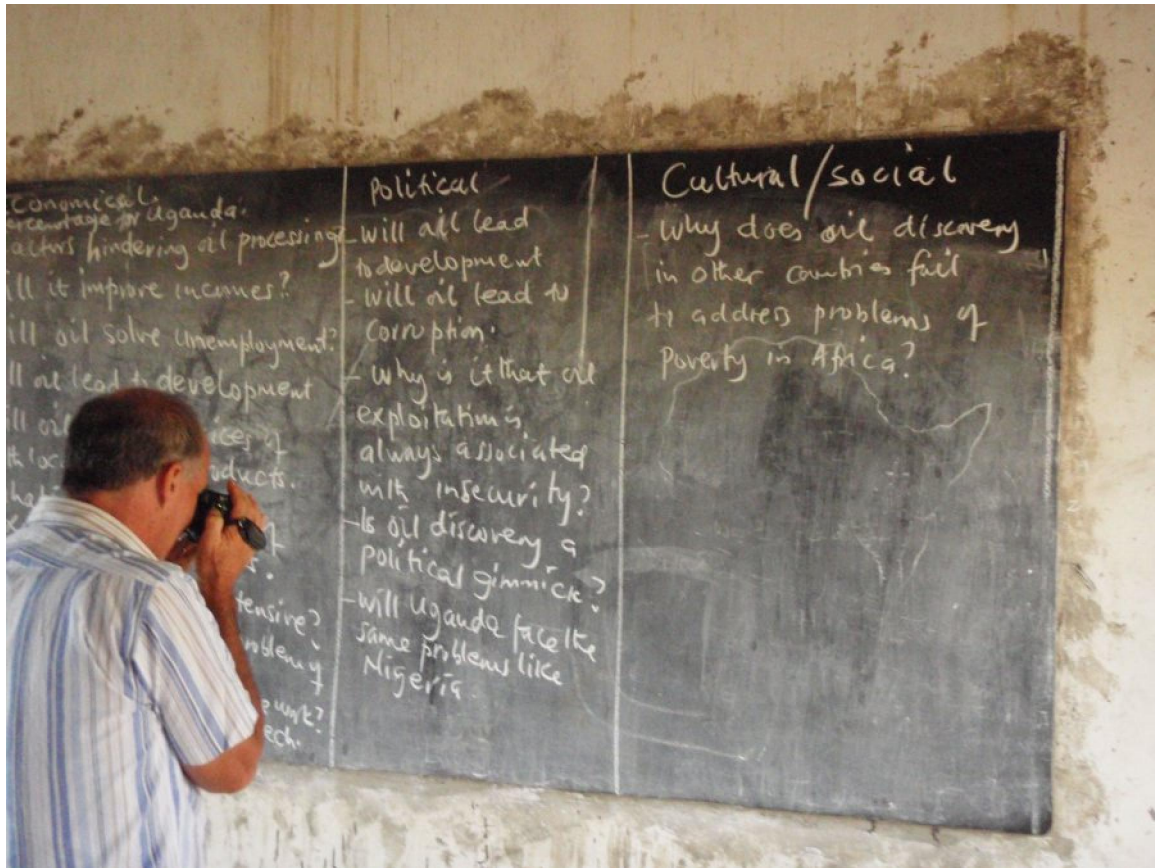 Economical
Percentage for Uganda.
factors hindering oil processing
will it improve incomes?
will oil solve unemployment?
will oil lead to development
will oil ices of
products.
of
tensive?
problem of
work?
tech.
Political
- will oil lead
to development
- will oil lead to
corruption.
- why is it that oil
exploitation is
always associated
with insecurity?
- Is oil discovery a
political gimmick?
- will Uganda face the
same problems like
Nigeria.
Cultural/social
- Why does oil discovery
in other countries fail
to address problems of
poverty in Africa?